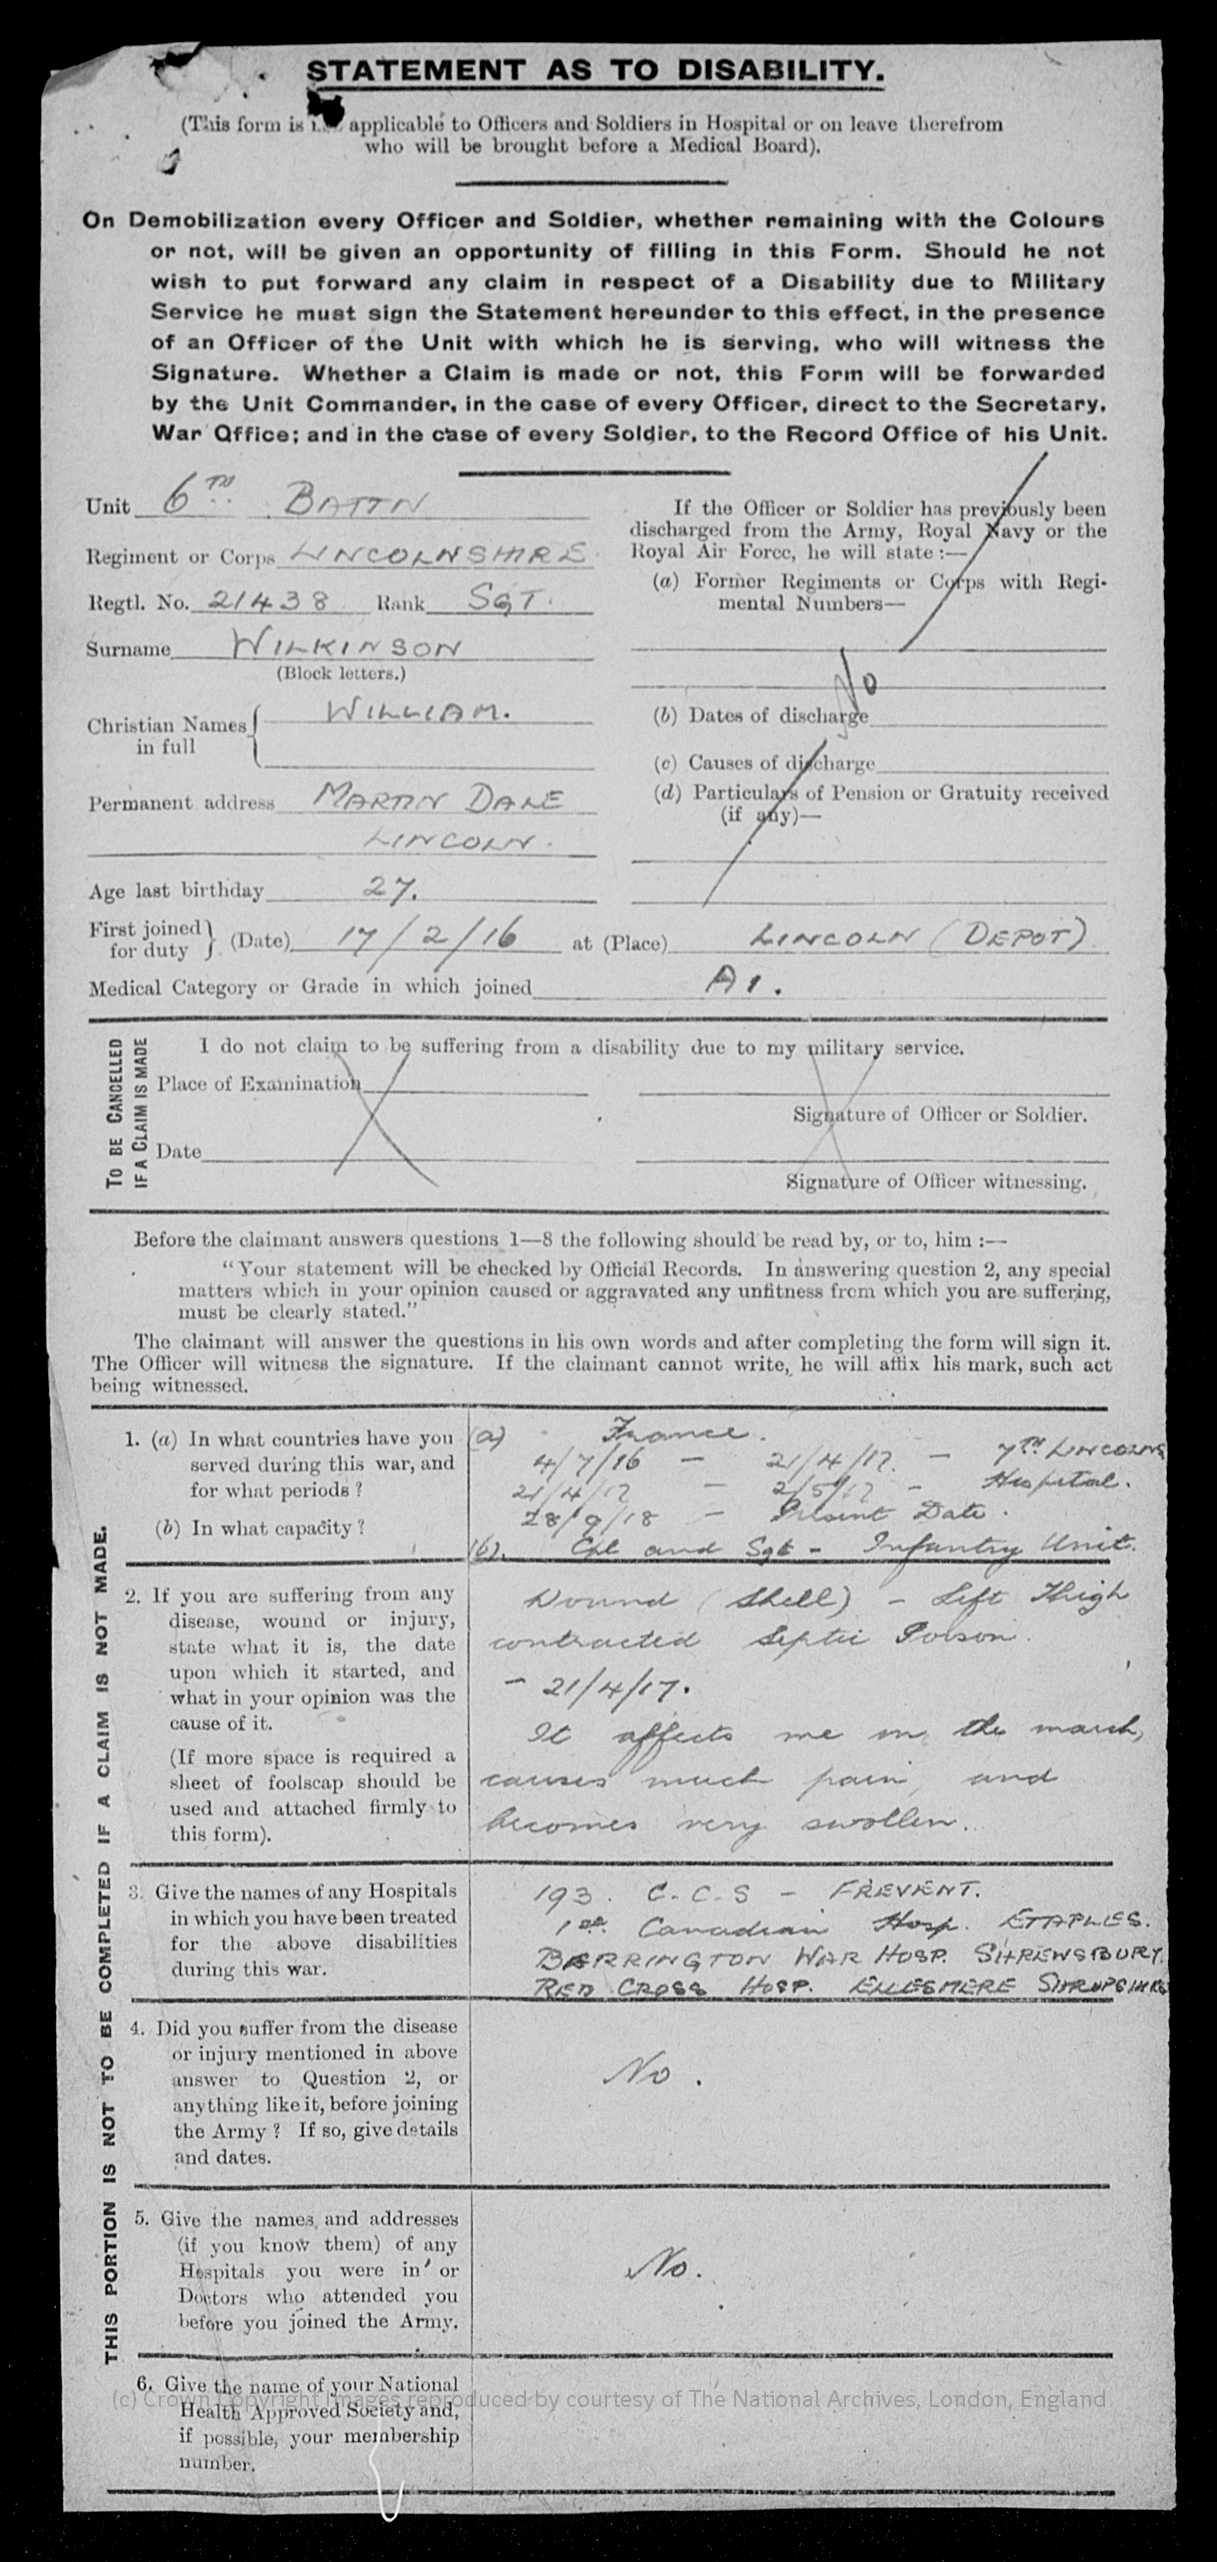 STATEMENT AS TO DISABILITY.
(This form is applicable to Officers and Soldiers in Hospital or on leave therefrom
who will be brought before a Medical Board).
On Demobilization every Officer and Soldier, whether remaining with the Colours
or not, will be given an opportunity of filling in this Form. Should he not
wish to put forward any claim in respect of a Disability due to Military
Service he must sign the Statement hereunder to this effect, in the presence
of an Officer of the Unit with which he is serving, who will witness the
Signature. Whether a Claim is made or not, this Form will be forwarded
by the Unit Commander, in the case of every Officer, direct to the Secretary,
War Office; and in the case of every Soldier, to the Record Office of his Unit.
Unit 6TH BATTN
Regiment or Corps LINCOLNSHIRE
Regtl. No. 21438 Rank SGT.
Surname WILKINSON
(Block letters.)
Christian Names in full { WILLIAM.
Permanent address MARTIN DALE
LINCOLN.
Age last birthday 27.
If the Officer or Soldier has previously been
discharged from the Army, Royal Navy or the
Royal Air Force, he will state :—
(a) Former Regiments or Corps with Regi-
mental Numbers—
No
(b) Dates of discharge
(c) Causes of discharge
(d) Particulars of Pension or Gratuity received
(if any)—
First joined for duty } (Date) 17/2/16 at (Place) LINCOLN (DEPOT)
Medical Category or Grade in which joined A1.
TO BE CANCELLED
IF A CLAIM IS MADE
I do not claim to be suffering from a disability due to my military service.
Place of Examination
Signature of Officer or Soldier.
Date
Signature of Officer witnessing.
Before the claimant answers questions 1—8 the following should be read by, or to, him :—
"Your statement will be checked by Official Records. In answering question 2, any special
matters which in your opinion caused or aggravated any unfitness from which you are suffering,
must be clearly stated."
The claimant will answer the questions in his own words and after completing the form will sign it.
The Officer will witness the signature. If the claimant cannot write, he will affix his mark, such act
being witnessed.
THIS PORTION IS NOT TO BE COMPLETED IF A CLAIM IS NOT MADE.
1. (a) In what countries have you
served during this war, and
for what periods ?
(b) In what capacity ?
(a) France.
4/7/16 — 21/4/17. — 7TH LINCOLNS
21/4/17 — 2/5/17 — Hospital.
28/9/18 — Present Date.
(b). Cpl and Sgt - Infantry Unit.
2. If you are suffering from any
disease, wound or injury,
state what it is, the date
upon which it started, and
what in your opinion was the
cause of it.
(If more space is required a
sheet of foolscap should be
used and attached firmly to
this form).
Wound (Shell) - Left Thigh
contracted Septic Poison.
- 21/4/17.
It affects me on the march,
causes much pain, and
becomes very swollen.
3. Give the names of any Hospitals
in which you have been treated
for the above disabilities
during this war.
193. C.C.S - FREVENT.
1st Canadian Hosp. ETAPLES.
BERRINGTON WAR HOSP. SHREWSBURY.
RED CROSS HOSP. ELLESMERE SHROPSHIRE
4. Did you suffer from the disease
or injury mentioned in above
answer to Question 2, or
anything like it, before joining
the Army ? If so, give details
and dates.
No.
5. Give the names and addresses
(if you know them) of any
Hospitals you were in or
Doctors who attended you
before you joined the Army.
No.
6. Give the name of your National
Health Approved Society and,
if possible, your membership
number.
(c) Crown Copyright Images reproduced by courtesy of The National Archives, London, England